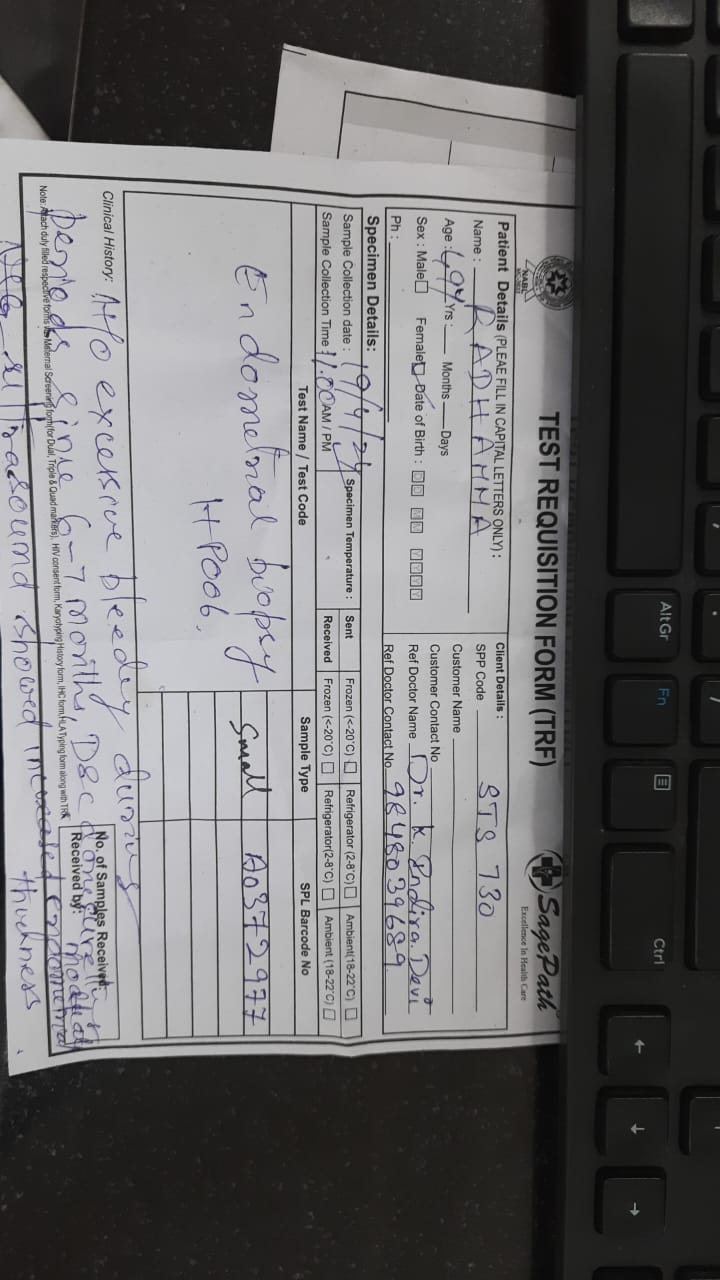 TEST REQUISITION FORM (TRF)
NABL
SagePath
Excellence In Health Care
Patient Details (PLEAE FILL IN CAPITAL LETTERS ONLY) :
Name : RADHAMMA
Age : 49Y Yrs : Months Days
Sex : Male Female Date of Birth : DD MM YYYY
Ph :
Client Details :
SPP Code STS 730
Customer Name
Customer Contact No
Ref Doctor Name Dr. K. Indira Devi
Ref Doctor Contact No 9848039689
Specimen Details:
Sample Collection date : 19/4/24 Specimen Temperature : Sent Frozen (<-20°C) Refrigerator (2-8°C) Ambient(18-22°C)
Sample Collection Time : 11.00 AM / PM Received Frozen (<-20°C) Refrigerator(2-8°C) Ambient (18-22°C)
Test Name / Test Code Sample Type SPL Barcode No
Endometrial biopsy Small A0372977
HP006.
Clinical History: H/o excessive bleeding during
periods since 6-7 months, D&C done
No. of Samples Received:
Received by:
Note: Attach duly filled respective forms viz Maternal Screening form(for Dual, Triple & Quad markers), HIV consent form, Karyotyping History form, IHC form,HLA Typing form along with TRF
ultrasound showed increased endometrial
thickness